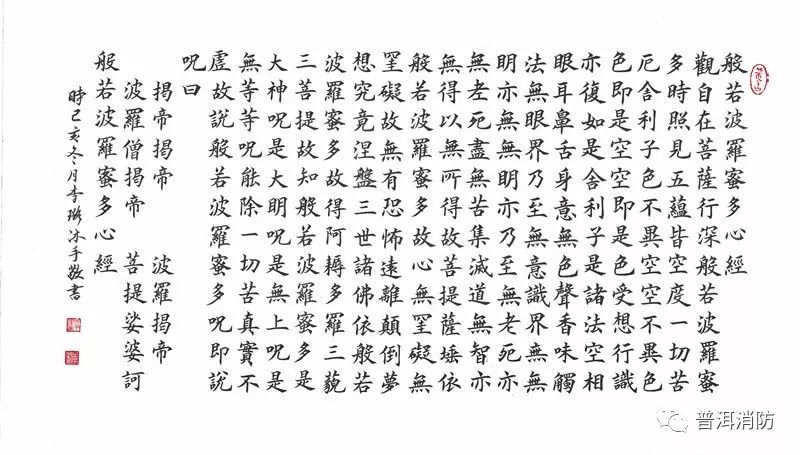 般若波羅蜜多心經
觀自在菩薩行深般若波羅蜜
多時照見五蘊皆空度一切苦
厄舍利子色不異空空不異色
色即是空空即是色受想行識
亦復如是舍利子是諸法空相
眼耳鼻舌身意無色聲香味觸
法無眼界乃至無意識界無無
明亦無無明亦乃至無老死亦
無老死盡無苦集滅道無智亦
無得以無所得故菩提薩埵依
般若波羅蜜多故心無罣礙無
罣礙故無有恐怖遠離顛倒夢
想究竟涅盤三世諸佛依般若
波羅蜜多故得阿耨多羅三藐
三菩提故知般若波羅蜜多是
大神呪是大明呪是無上呪是
無等等呪能除一切苦真實不
虛故説般若波羅蜜多呪即説
呪曰
揭帝揭帝 波羅揭帝
波羅僧揭帝 菩提娑婆訶
般若波羅蜜多心經
時己亥冬月李冰手敬書
普洱消防